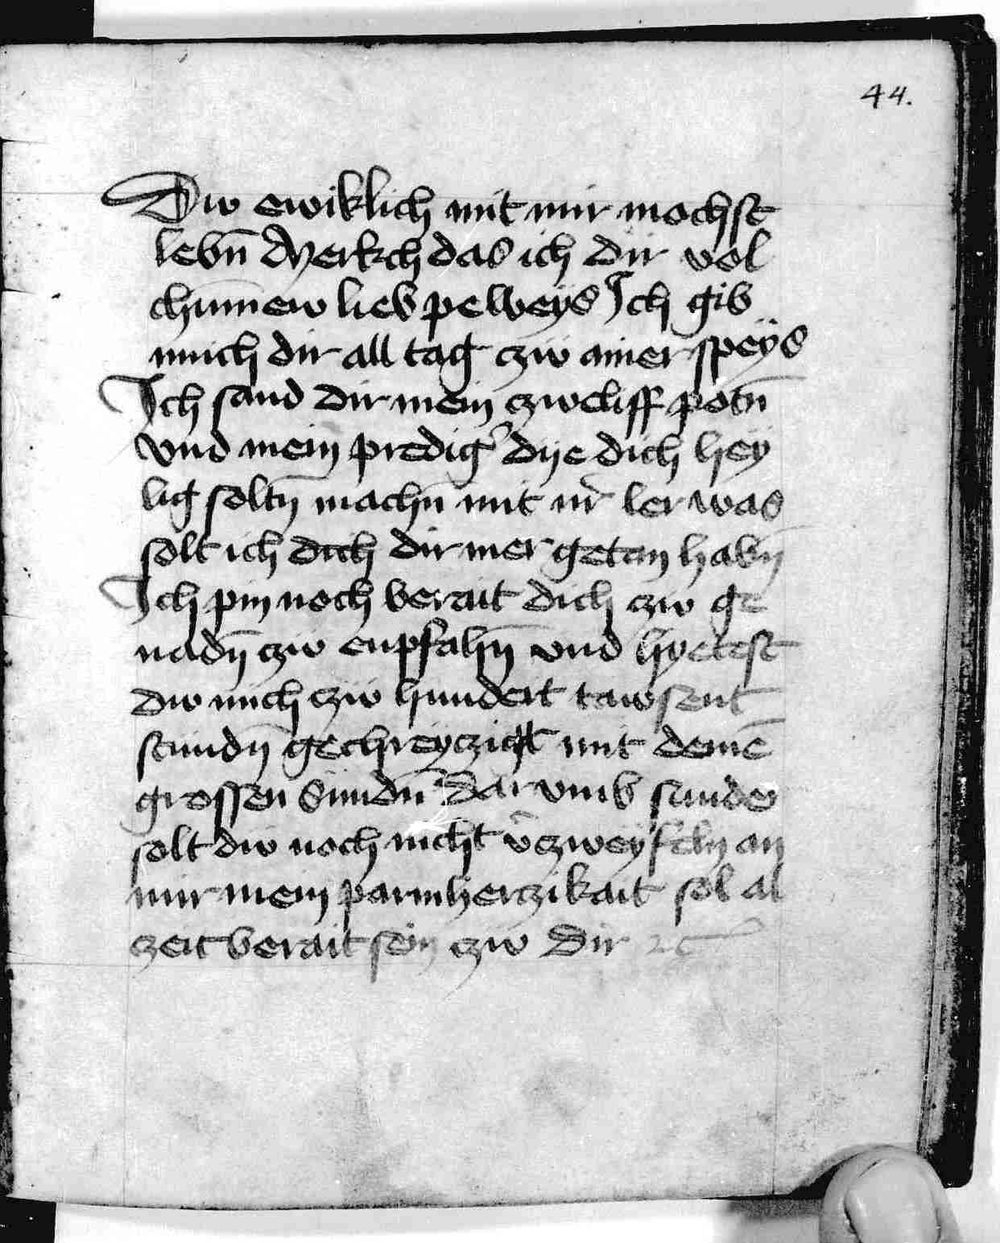 44.
Dw ewiklich mit mir mochst
lebn̄ Merkch das ich dir vol
chum̄ew lieb peweys Ich gib
mich dir all tag czw ainer speÿs
Ich sand dir mein czweliff potn̄
vnd mein predig̾ dye dich hey
lig soltn̄ machn̄ mit ir̾ ler was
solt ich dich dir mer getan habn̄
Ich pin noch berait dich czw ge
nadn̄ czw enpfahn̄ vnd hyetest
dw mich czw hundert tawsent
stundn̄ gechreyczigt mit deinē
grossen Sundn̄ Dar vmb sunder
solt dw noch nicht v̾czweyfeln an
mir mein parmherczikait sol al
czeit berait sein czw dir ꝛc